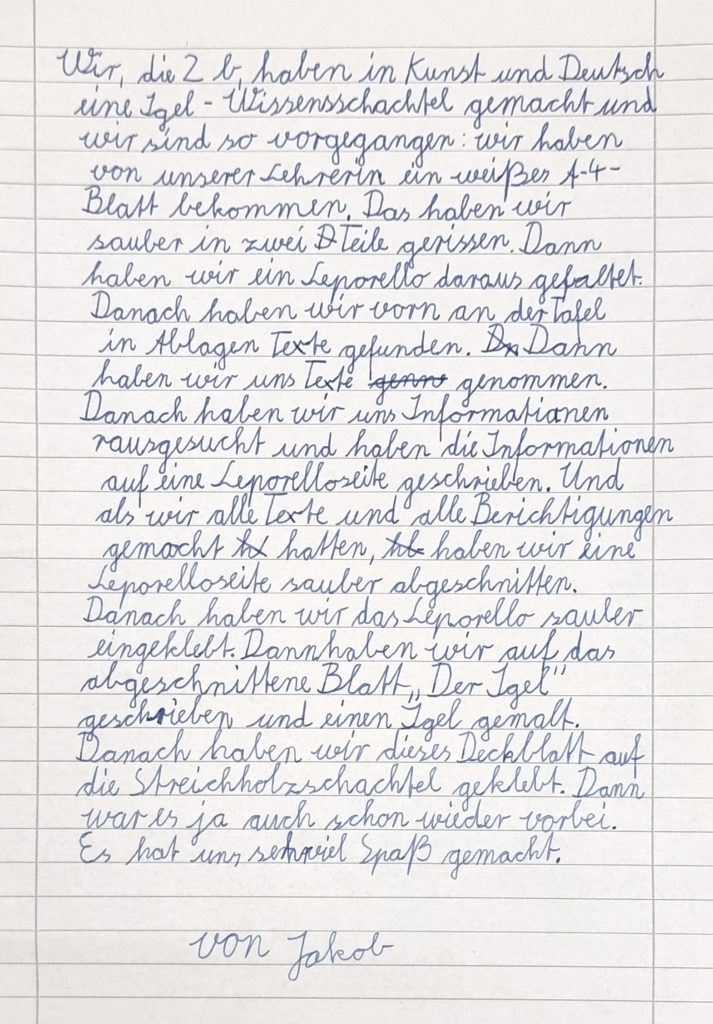 Wir, die 2 b, haben in Kunst und Deutsch
eine Igel - Wissensschachtel gemacht und
wir sind so vorgegangen: wir haben
von unserer Lehrerin ein weißes A-4-
Blatt bekommen. Das haben wir
sauber in zwei Teile gerissen. Dann
haben wir ein Leporello daraus gefaltet.
Danach haben wir vorn an der Tafel
in Ablagen Texte gefunden. Dann
haben wir uns Texte genommen.
Danach haben wir uns Informationen
rausgesucht und haben die Informationen
auf eine Leporelloseite geschrieben. Und
als wir alle Texte und alle Berichtigungen
gemacht hatten, haben wir eine
Leporelloseite sauber abgeschnitten.
Danach haben wir das Leporello sauber
eingeklebt. Dann haben wir auf das
abgeschnittene Blatt „Der Igel"
geschrieben und einen Igel gemalt.
Danach haben wir dieses Deckblatt auf
die Streichholzschachtel geklebt. Dann
war es ja auch schon wieder vorbei.
Es hat uns sehr viel Spaß gemacht.
von Jakob